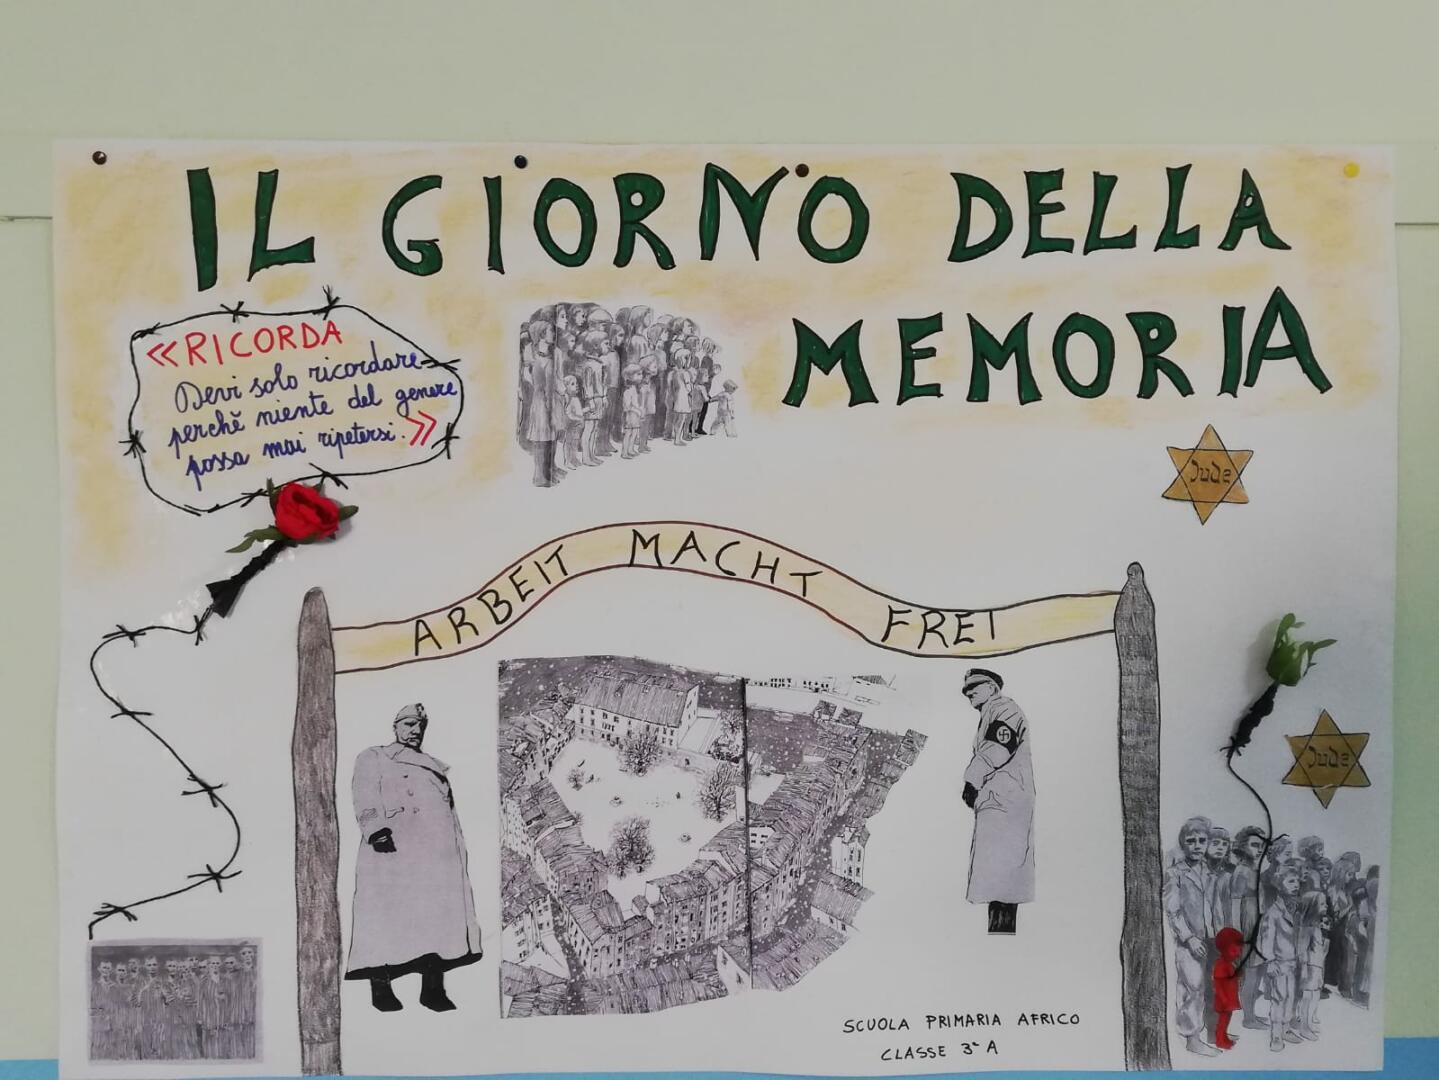 IL GIORNO DELLA
MEMORIA
«RICORDA
Devi solo ricordare
perchĕ niente del genere
possa mai ripetersi.»
Jude
ARBEIT MACHT FREI
Jude
SCUOLA PRIMARIA AFRICO
CLASSE 3ª A